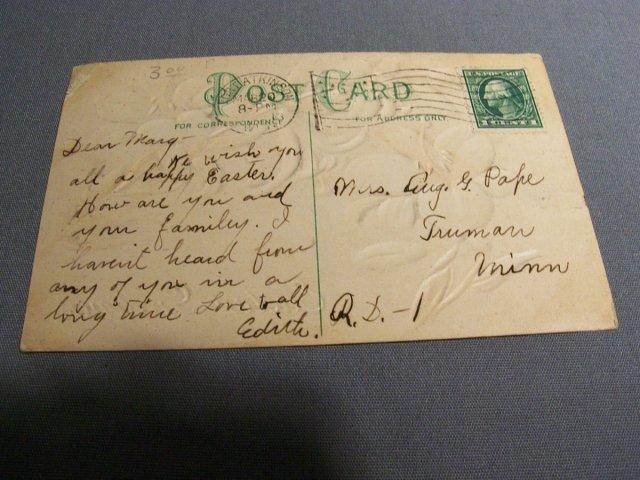 3 00
POST CARD
FOR CORRESPONDENCE
FOR ADDRESS ONLY
ATKINSON
8-PM
U.S. POSTAGE
Dear Mary-
We wish you
all a happy Easter.
How are you and
your familey. I
haven't heard from
any of you in a
long time Love to all
Edith.
Mrs. Aug. G. Pape
Truman
Minn
R.D.-1